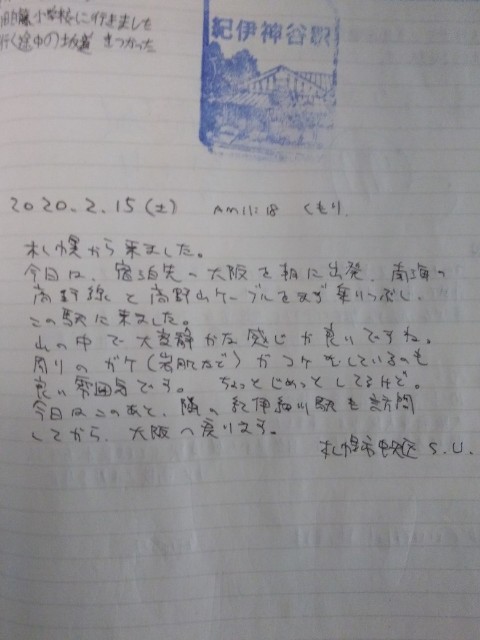 白藤小学校に行きました
行く途中の坂道 きつかった
紀伊神谷駅
2020.2.15(土) AM11:18 くもり.
札幌から来ました。
今日は、宿泊先の大阪を朝に出発、南海の
高野線と高野山ケーブルをまず乗りつぶし、
この駅に来ました。
山の中で大変静かな感じが良いですね。
周りのガケ(岩肌など)がコケむしているのも
良い雰囲気です。 ちょっとじめっとしてるけど。
今日はこのあと、隣の紀伊細川駅も訪問
してから、大阪へ戻ります。
札幌市中央区 S.U.